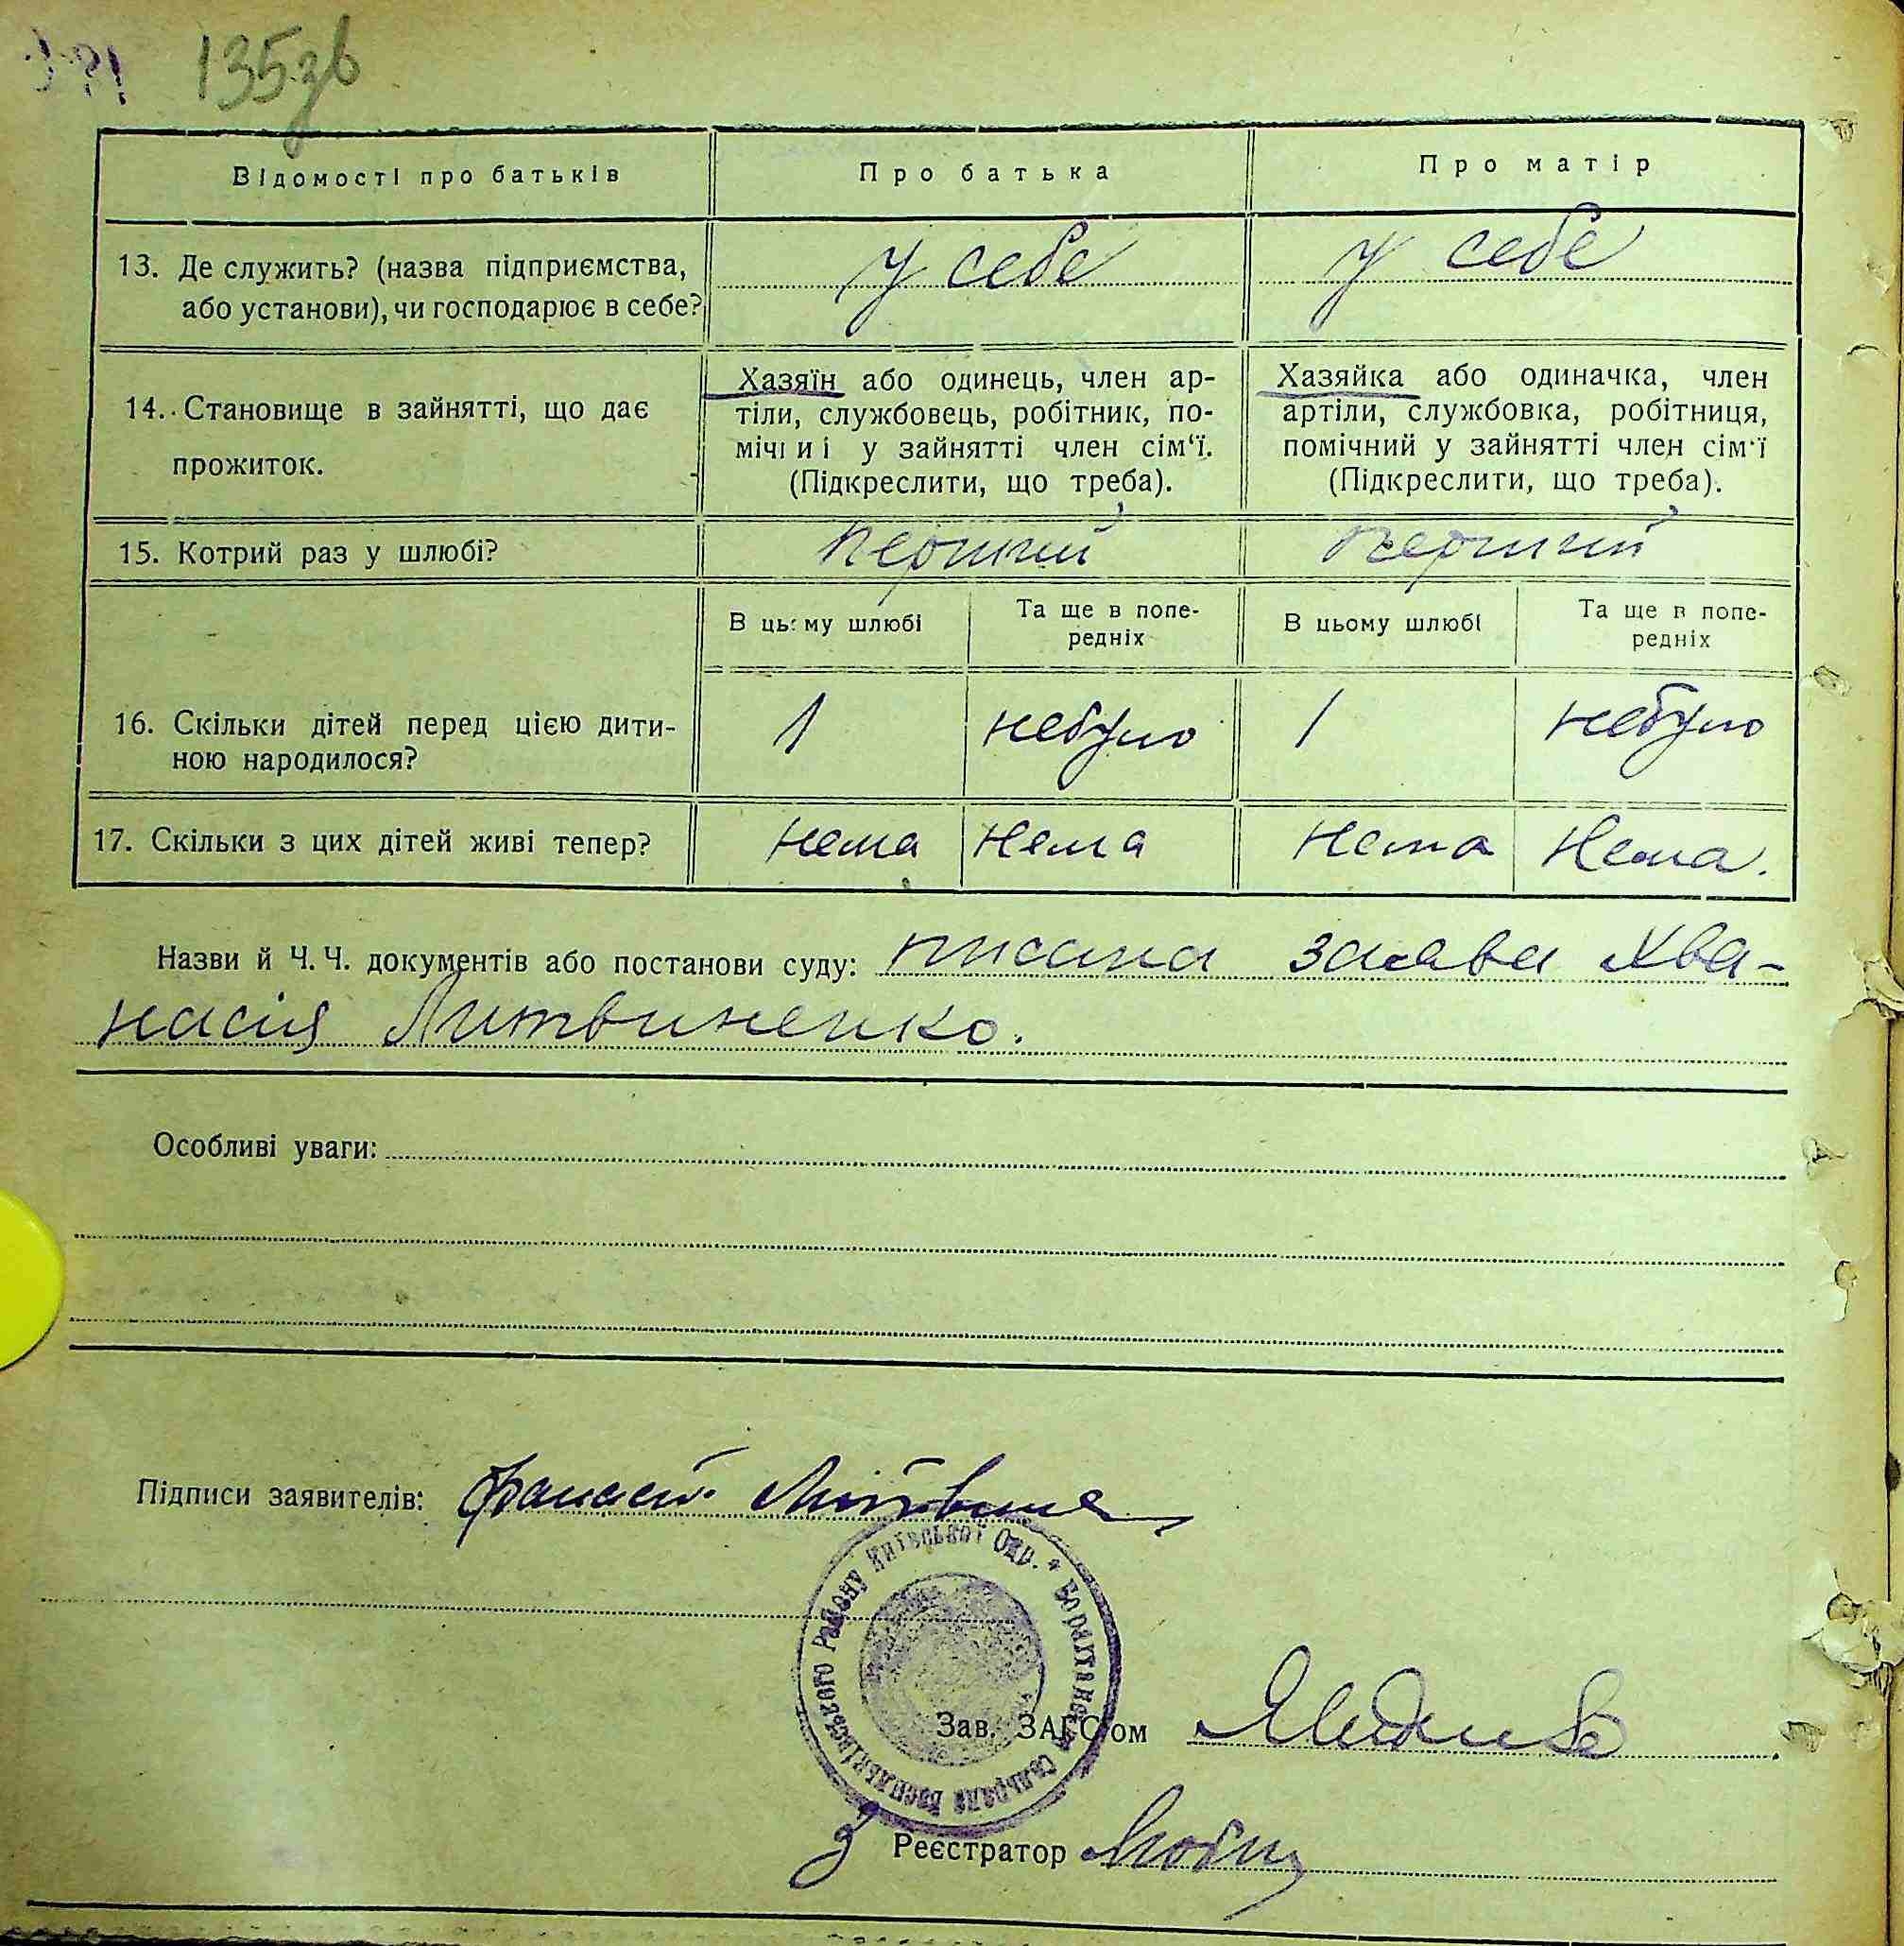 135зв
Відомості про батьків
Про батька
Про матір
13. Де служить? (назва підприємства,
або установи), чи господарює в себе?
у себе
у себе
14. Становище в зайнятті, що дає
прожиток.
Хазяїн або одинець, член ар-
тіли, службовець, робітник, по-
мічний у зайнятті член сім'ї.
(Підкреслити, що треба).
Хазяйка або одиначка, член
артіли, службовка, робітниця,
помічний у зайнятті член сім'ї
(Підкреслити, що треба).
15. Котрий раз у шлюбі?
перший
перший
В цьому шлюбі
Та ще в попе-
редніх
В цьому шлюбі
Та ще в попе-
редніх
16. Скільки дітей перед цією дити-
ною народилося?
1
небуло
1
небуло
17. Скільки з цих дітей живі тепер?
нема
нема
нема
нема.
Назви й Ч. Ч. документів або постанови суду: писана заява Хва-
насія Литвиненко.
Особливі уваги:
Підписи заявителів:
Сільрада Васильківського Району Київської Окр. *
Зав. ЗАГС'ом
Реєстратор